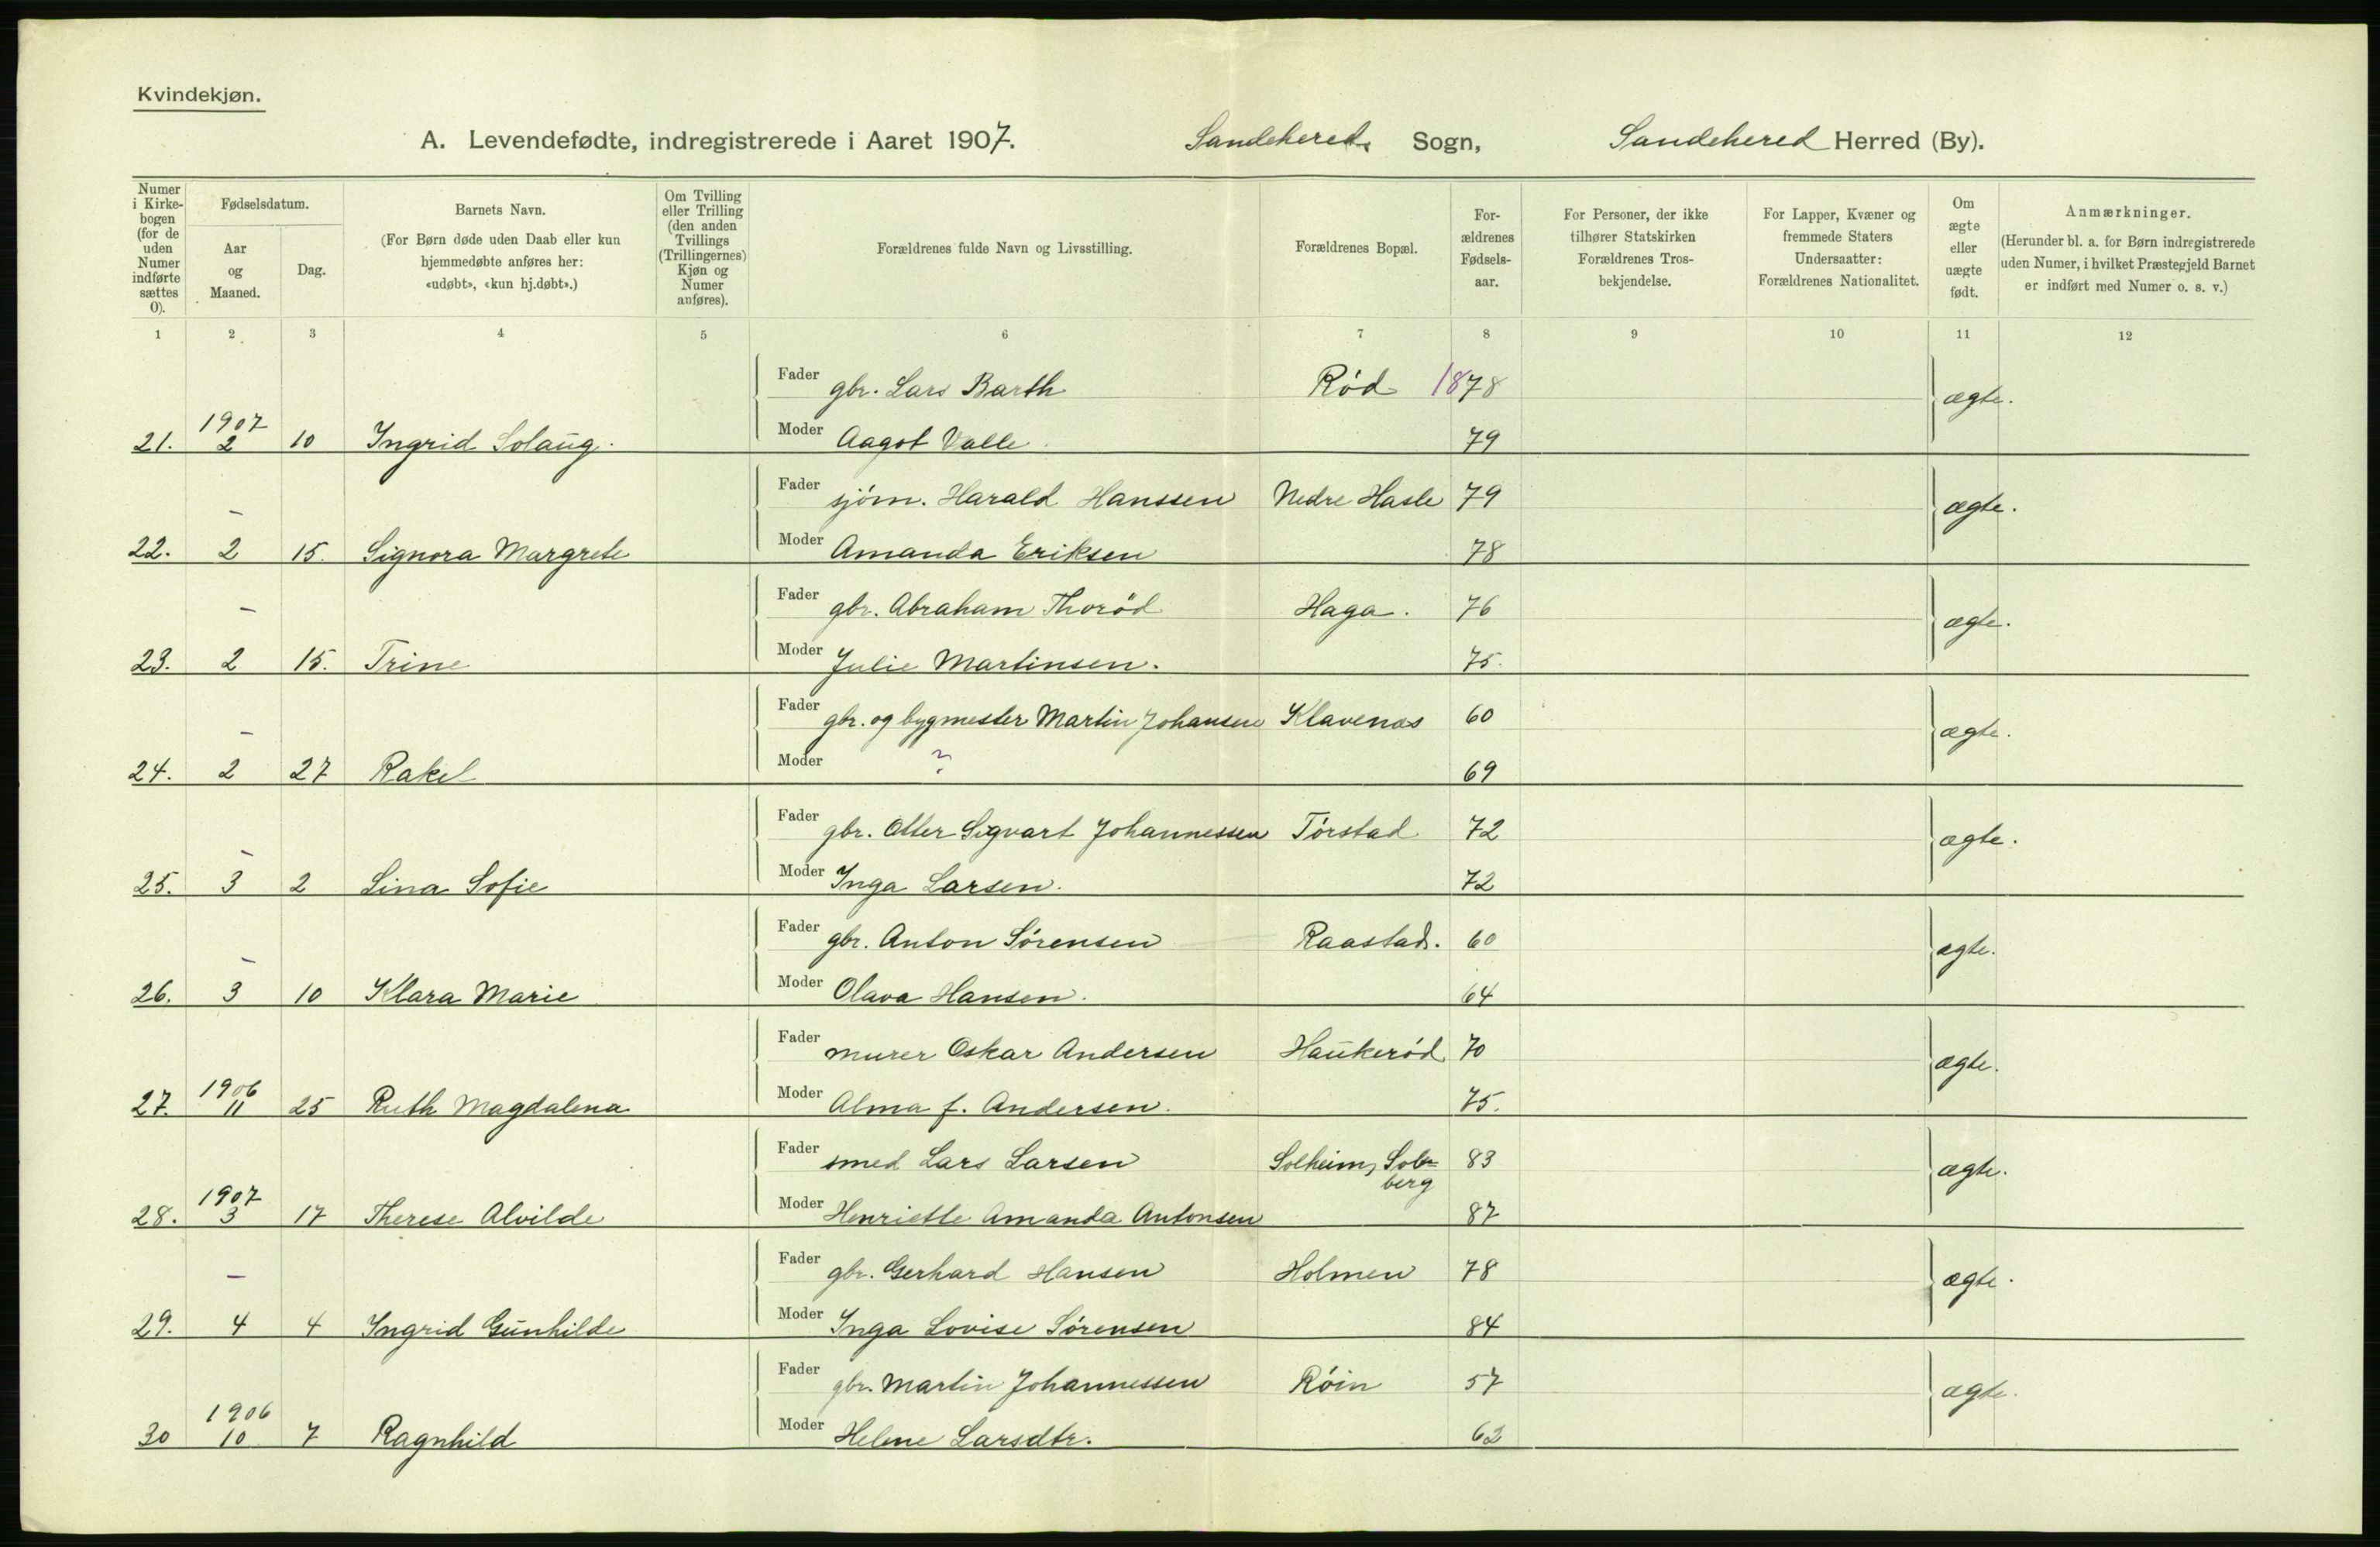 Kvindekjøn.
A. Levendefødte, indregistrerede i Aaret 1907. Sandehered Sogn, Sandehered Herred (By).
Numer i Kirkebogen (for de uden Numer indførte sættes 0).
Fødselsdatum.
Aar og Maaned.
Dag.
Barnets Navn.
(For Børn døde uden Daab eller kun hjemmedøbte anføres her: «udøbt», «kun hj.døbt».)
Om Tvilling eller Trilling (den anden Tvillings (Trillingernes) Kjøn og Numer anføres).
Forældrenes fulde Navn og Livsstilling.
Forældrenes Bopæl.
Forældrenes Fødselsaar.
For Personer, der ikke tilhører Statskirken Forældrenes Trosbekjendelse.
For Lapper, Kvæner og fremmede Staters Undersaatter: Forældrenes Nationalitet.
Om ægte eller uægte født.
Anmærkninger.
(Herunder bl. a. for Børn indregistrerede uden Numer, i hvilket Præstegjeld Barnet er indført med Numer o. s. v.)
1 2 3 4 5 6 7 8 9 10 11 12
Fader gbr. Lars Barth Rød 1878 ægte.
21. 1907 2 10 Ingrid Solaug. Moder Aagot Valle. 79
Fader sjøm. Harald Hanssen Nedre Hasle 79 ægte.
22. – 2 15. Signora Margrete Moder Amanda Eriksen 78
Fader gbr. Abraham Thorød Haga. 76 ægte.
23. – 2 15. Trine Moder Julie Martinsen. 75.
Fader gbr. og bygmester Martin Johansen Klavenæs 60 ægte.
24. – 2 27 Rakel Moder ? 69
Fader gbr. Otter Sigvart Johannessen Tørstad 72 ægte.
25. – 3 2 Lina Sofie Moder Inga Larsen. 72
Fader gbr. Anton Sørensen Raastad. 60 ægte.
26. – 3 10 Klara Marie Moder Olava Hansen. 64
Fader murer Oskar Andersen Haukerød 70 ægte.
27. 1906 11 25 Ruth Magdalena Moder Alma f. Andersen. 75.
Fader smed Lars Larsen Solheim, Solberg 83 ægte.
28. 1907 3 17 Therese Alvilde Moder Henriette Amanda Antonsen 87
Fader gbr. Gerhard Hansen Holmen 78 ægte.
29. – 4 4 Ingrid Gunhilde Moder Inga Lovise Sørensen 84
Fader gbr. Martin Johannessen Røin 57 ægte.
30 1906 10 7 Ragnhild Moder Helene Larsdtr. 62